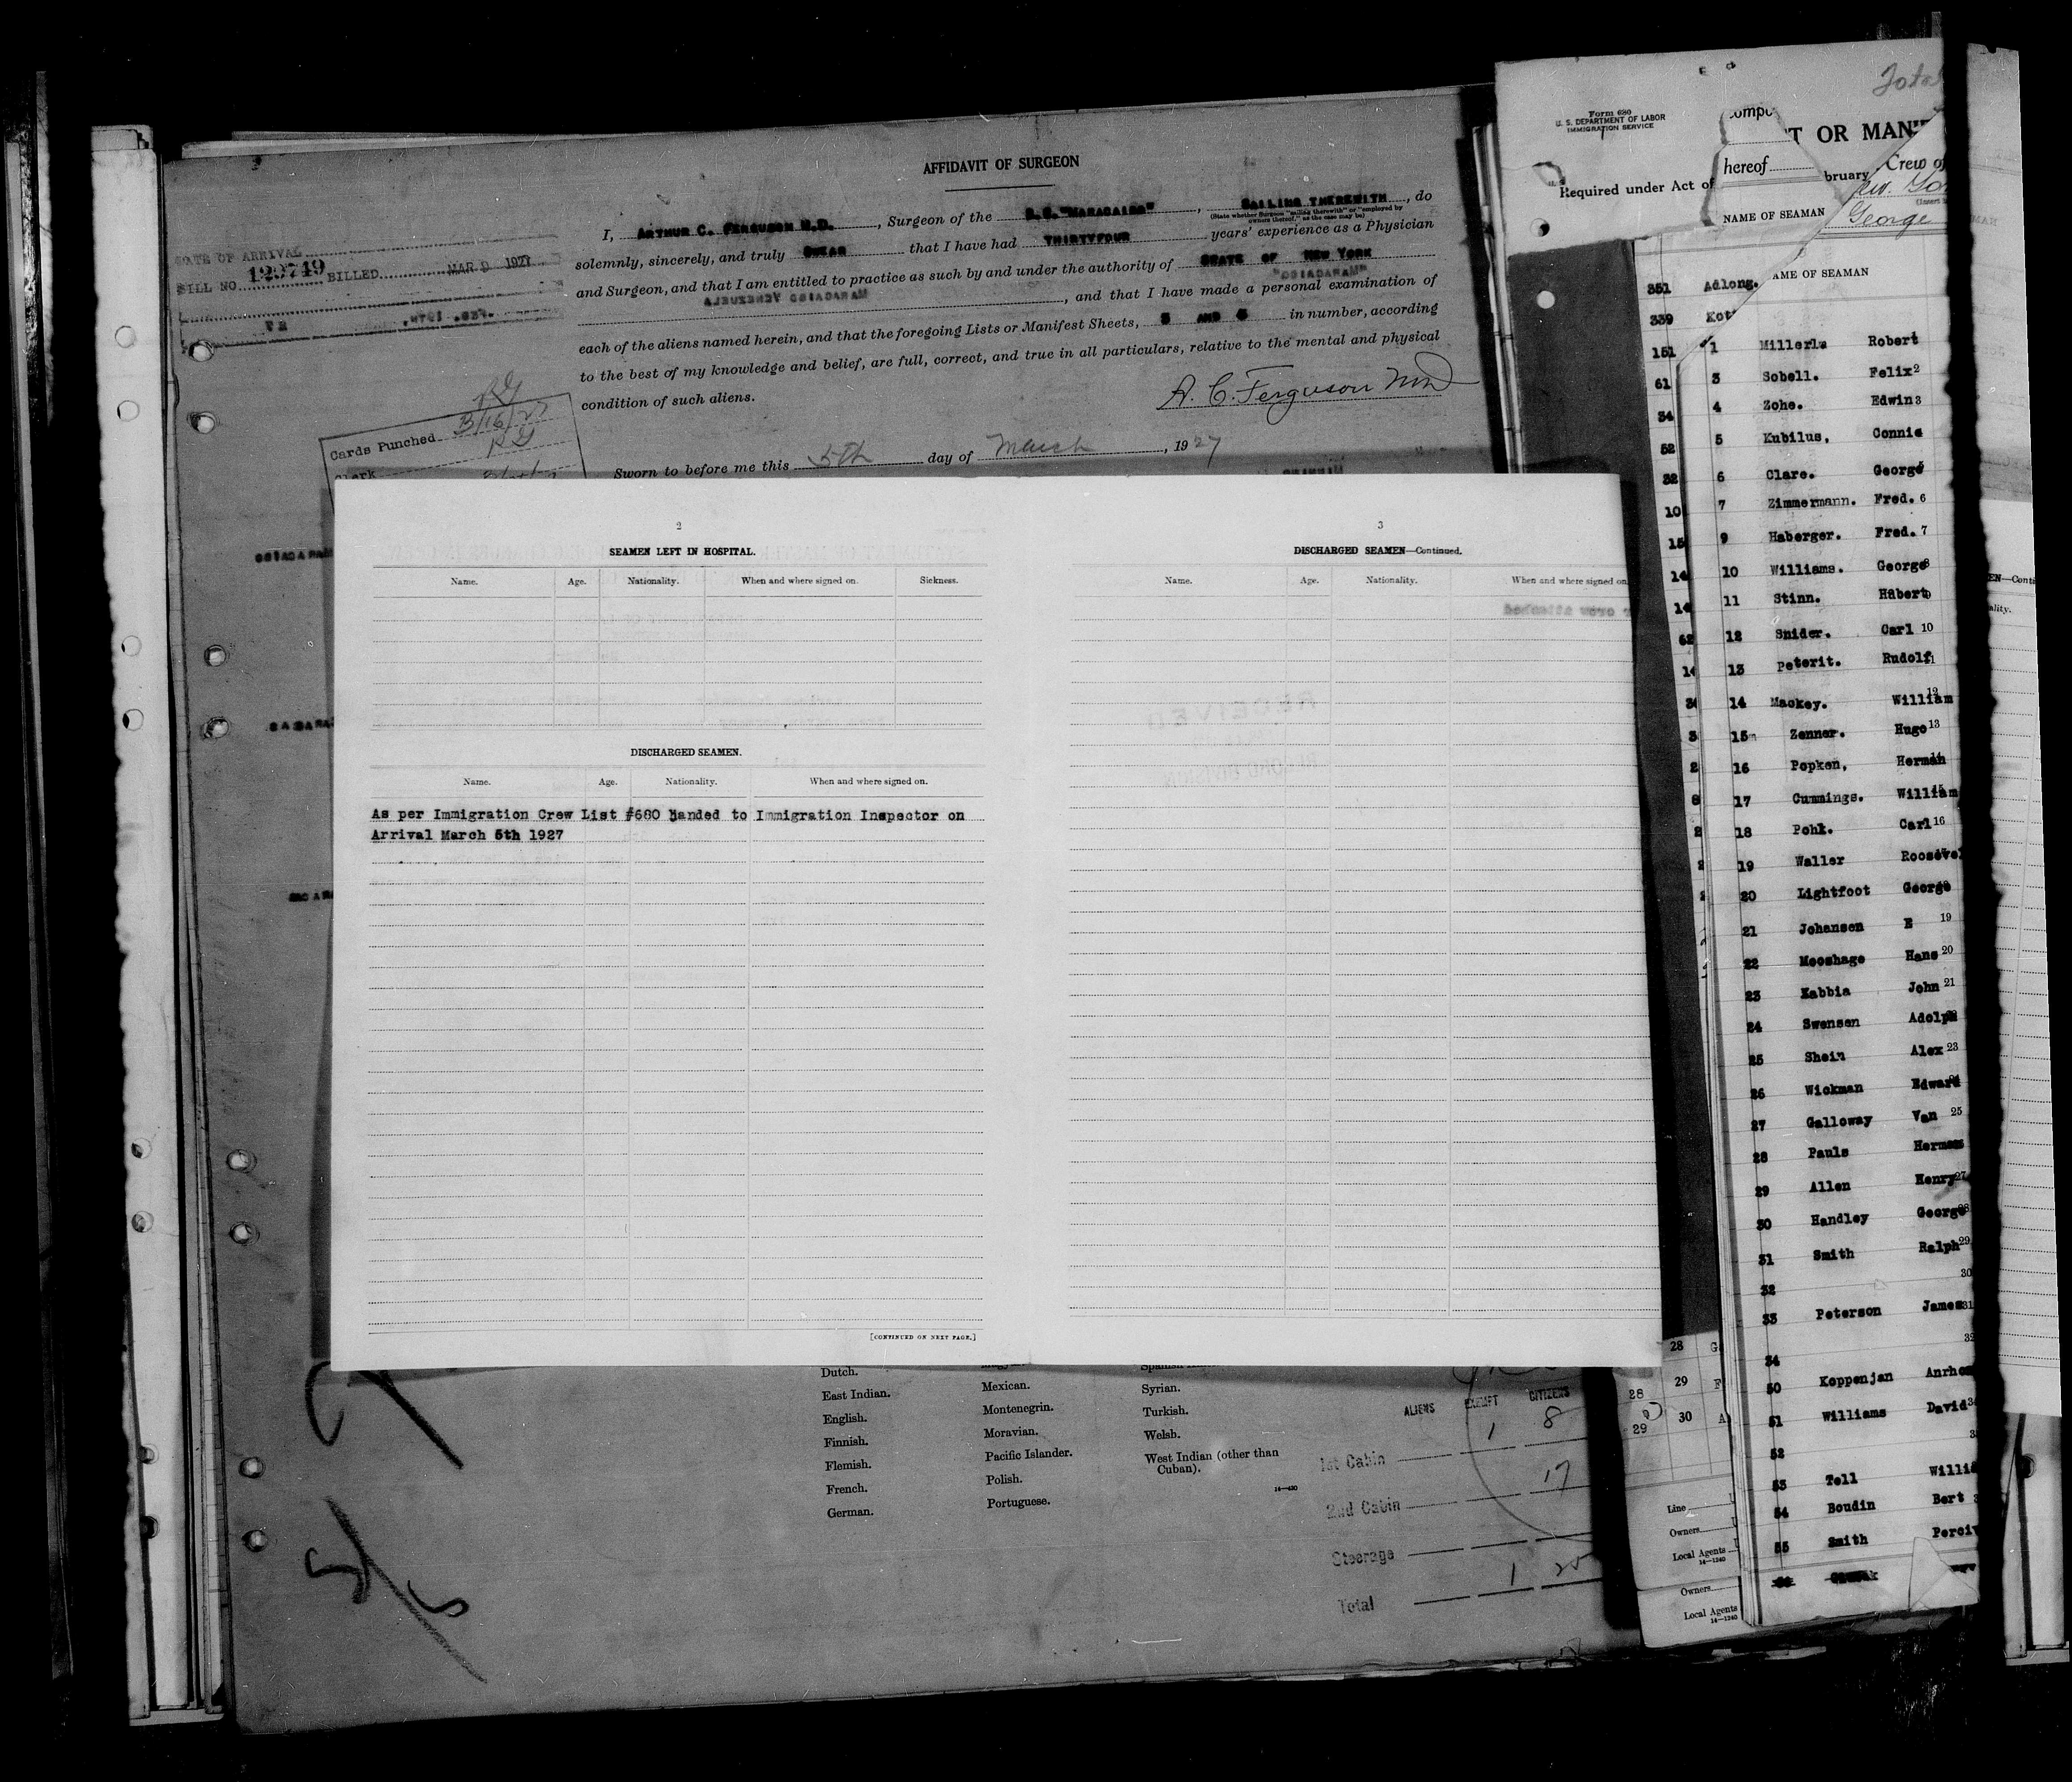 AFFIDAVIT OF SURGEON
I, ARTHUR C. FERGUSON M.D. , Surgeon of the S.S. "MARACAIBO" , SAILING THEREWITH , do
(State whether Surgeon "sailing therewith" or "employed by
owners thereof," as the case may be)
solemnly, sincerely, and truly SWEAR that I have had THIRTYFOUR years' experience as a Physician
and Surgeon, and that I am entitled to practice as such by and under the authority of STATE OF NEW YORK
, and that I have made a personal examination of
each of the aliens named herein, and that the foregoing Lists or Manifest Sheets, AND in number, according
to the best of my knowledge and belief, are full, correct, and true in all particulars, relative to the mental and physical
condition of such aliens.
A. C. Ferguson MD
Sworn to before me this 5th day of March , 1927
DATE OF ARRIVAL
BILL NO. 129749 BILLED MAR 9 1927
Cards Punched 3/16/27
Clerk
2
SEAMEN LEFT IN HOSPITAL.
Name. Age. Nationality. When and where signed on. Sickness.
DISCHARGED SEAMEN.
Name. Age. Nationality. When and where signed on.
As per Immigration Crew List #680 handed to Immigration Inspector on
Arrival March 5th 1927
[CONTINUED ON NEXT PAGE.]
3
DISCHARGED SEAMEN—Continued.
Name. Age. Nationality. When and where signed on.
Dutch.
East Indian.
English.
Finnish.
Flemish.
French.
German.
Mexican.
Montenegrin.
Moravian.
Pacific Islander.
Polish.
Portuguese.
Syrian.
Turkish.
Welsh.
West Indian (other than
Cuban).
14—430
ALIENS EXEMPT CITIZENS
1st Cabin 1 8
2nd Cabin 17
Steerage
Total 1 25
Total
Form 680
U. S. DEPARTMENT OF LABOR
IMMIGRATION SERVICE
T OR MANI
Required under Act of
hereof
bruary
Crew of
NAME OF SEAMAN
George
AME OF SEAMAN
351 Adlong.
339
151 1 Millerls Robert
61 3 Sobell. Felix 2
34 4 Zohe. Edwin 3
52 5 Kubilus, Connie
32 6 Clare. George
10 7 Zimmermann. Fred. 6
15 9 Haberger. Fred. 7
14 10 Williams. George 8
14 11 Stinn. Hubert
62 12 Snider. Carl 10
13 Peterit. Rudolf
14 Mackey. William 12
15 Zenner. Hugo 13
16 Popken, Herman 14
17 Cummings. William
18 Pohl. Carl 16
19 Waller Roosevel
20 Lightfoot George
21 Johansen E 19
22 Mooshage Hans 20
23 Kabbia John 21
24 Swensen Adolph
25 Shein Alex 23
26 Wickman Edward
27 Galloway Van 25
28 Pauls Herman
29 Allen Henry 27
30 Handley George
31 Smith Ralph 29
32 30
33 Peterson James 31
34
50 Koppenjan
51 Williams David
52
53 Tell Willia
54 Boudin Bert
55 Smith Perciv
28
28 29 F
29 30 A
Line
Owners
Local Agents
14—1240
Owners
Local Agents
14—1240